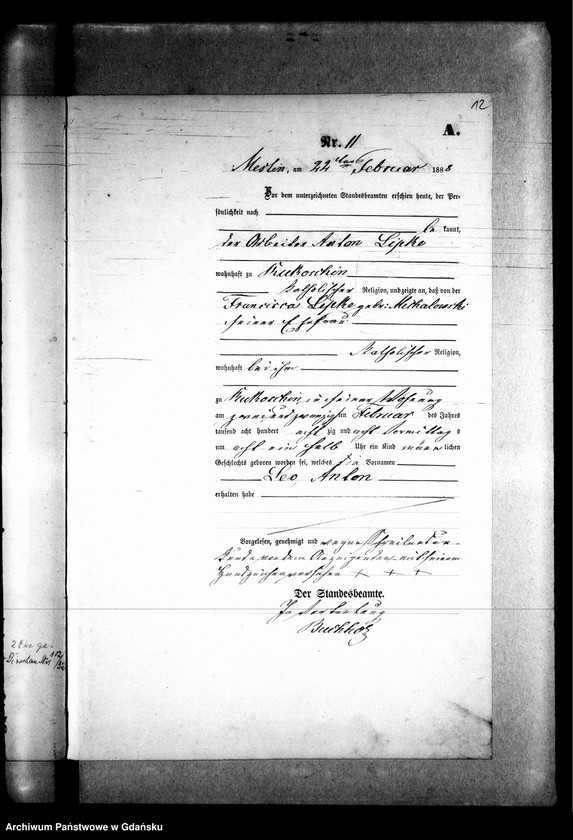 12
A.
Nr. 11
Mestin, am 22ten Februar 1888
Vor dem unterzeichneten Standesbeamten erschien heute, der Per-
sönlichkeit nach
be kannt,
der Arbeiter Anton Lipke
wohnhaft zu Kukoschin
katholischer Religion, und zeigte an, daß von der
Francisca Lipke geb: Michalowski
seiner Ehefrau
Katholischer Religion,
wohnhaft bei ihm
zu Kukoschin, in seiner Wohnung
am zweiundzwanzigsten Februar des Jahres
tausend acht hundert achtzig und acht Vormittags
um acht ein halb Uhr ein Kind männlichen
Geschlechts geboren worden sei, welches die Vornamen
Leo, Anton
erhalten habe
Vorgelesen, genehmigt und wegen Schreibensun-
kunde von dem Anzeigenden mit seinem
Handzeichen versehen + + +
Der Standesbeamte.
In Vertretung
Buchholz
2 Ehe ge.
Dirschau
Archiwum Państwowe w Gdańsku